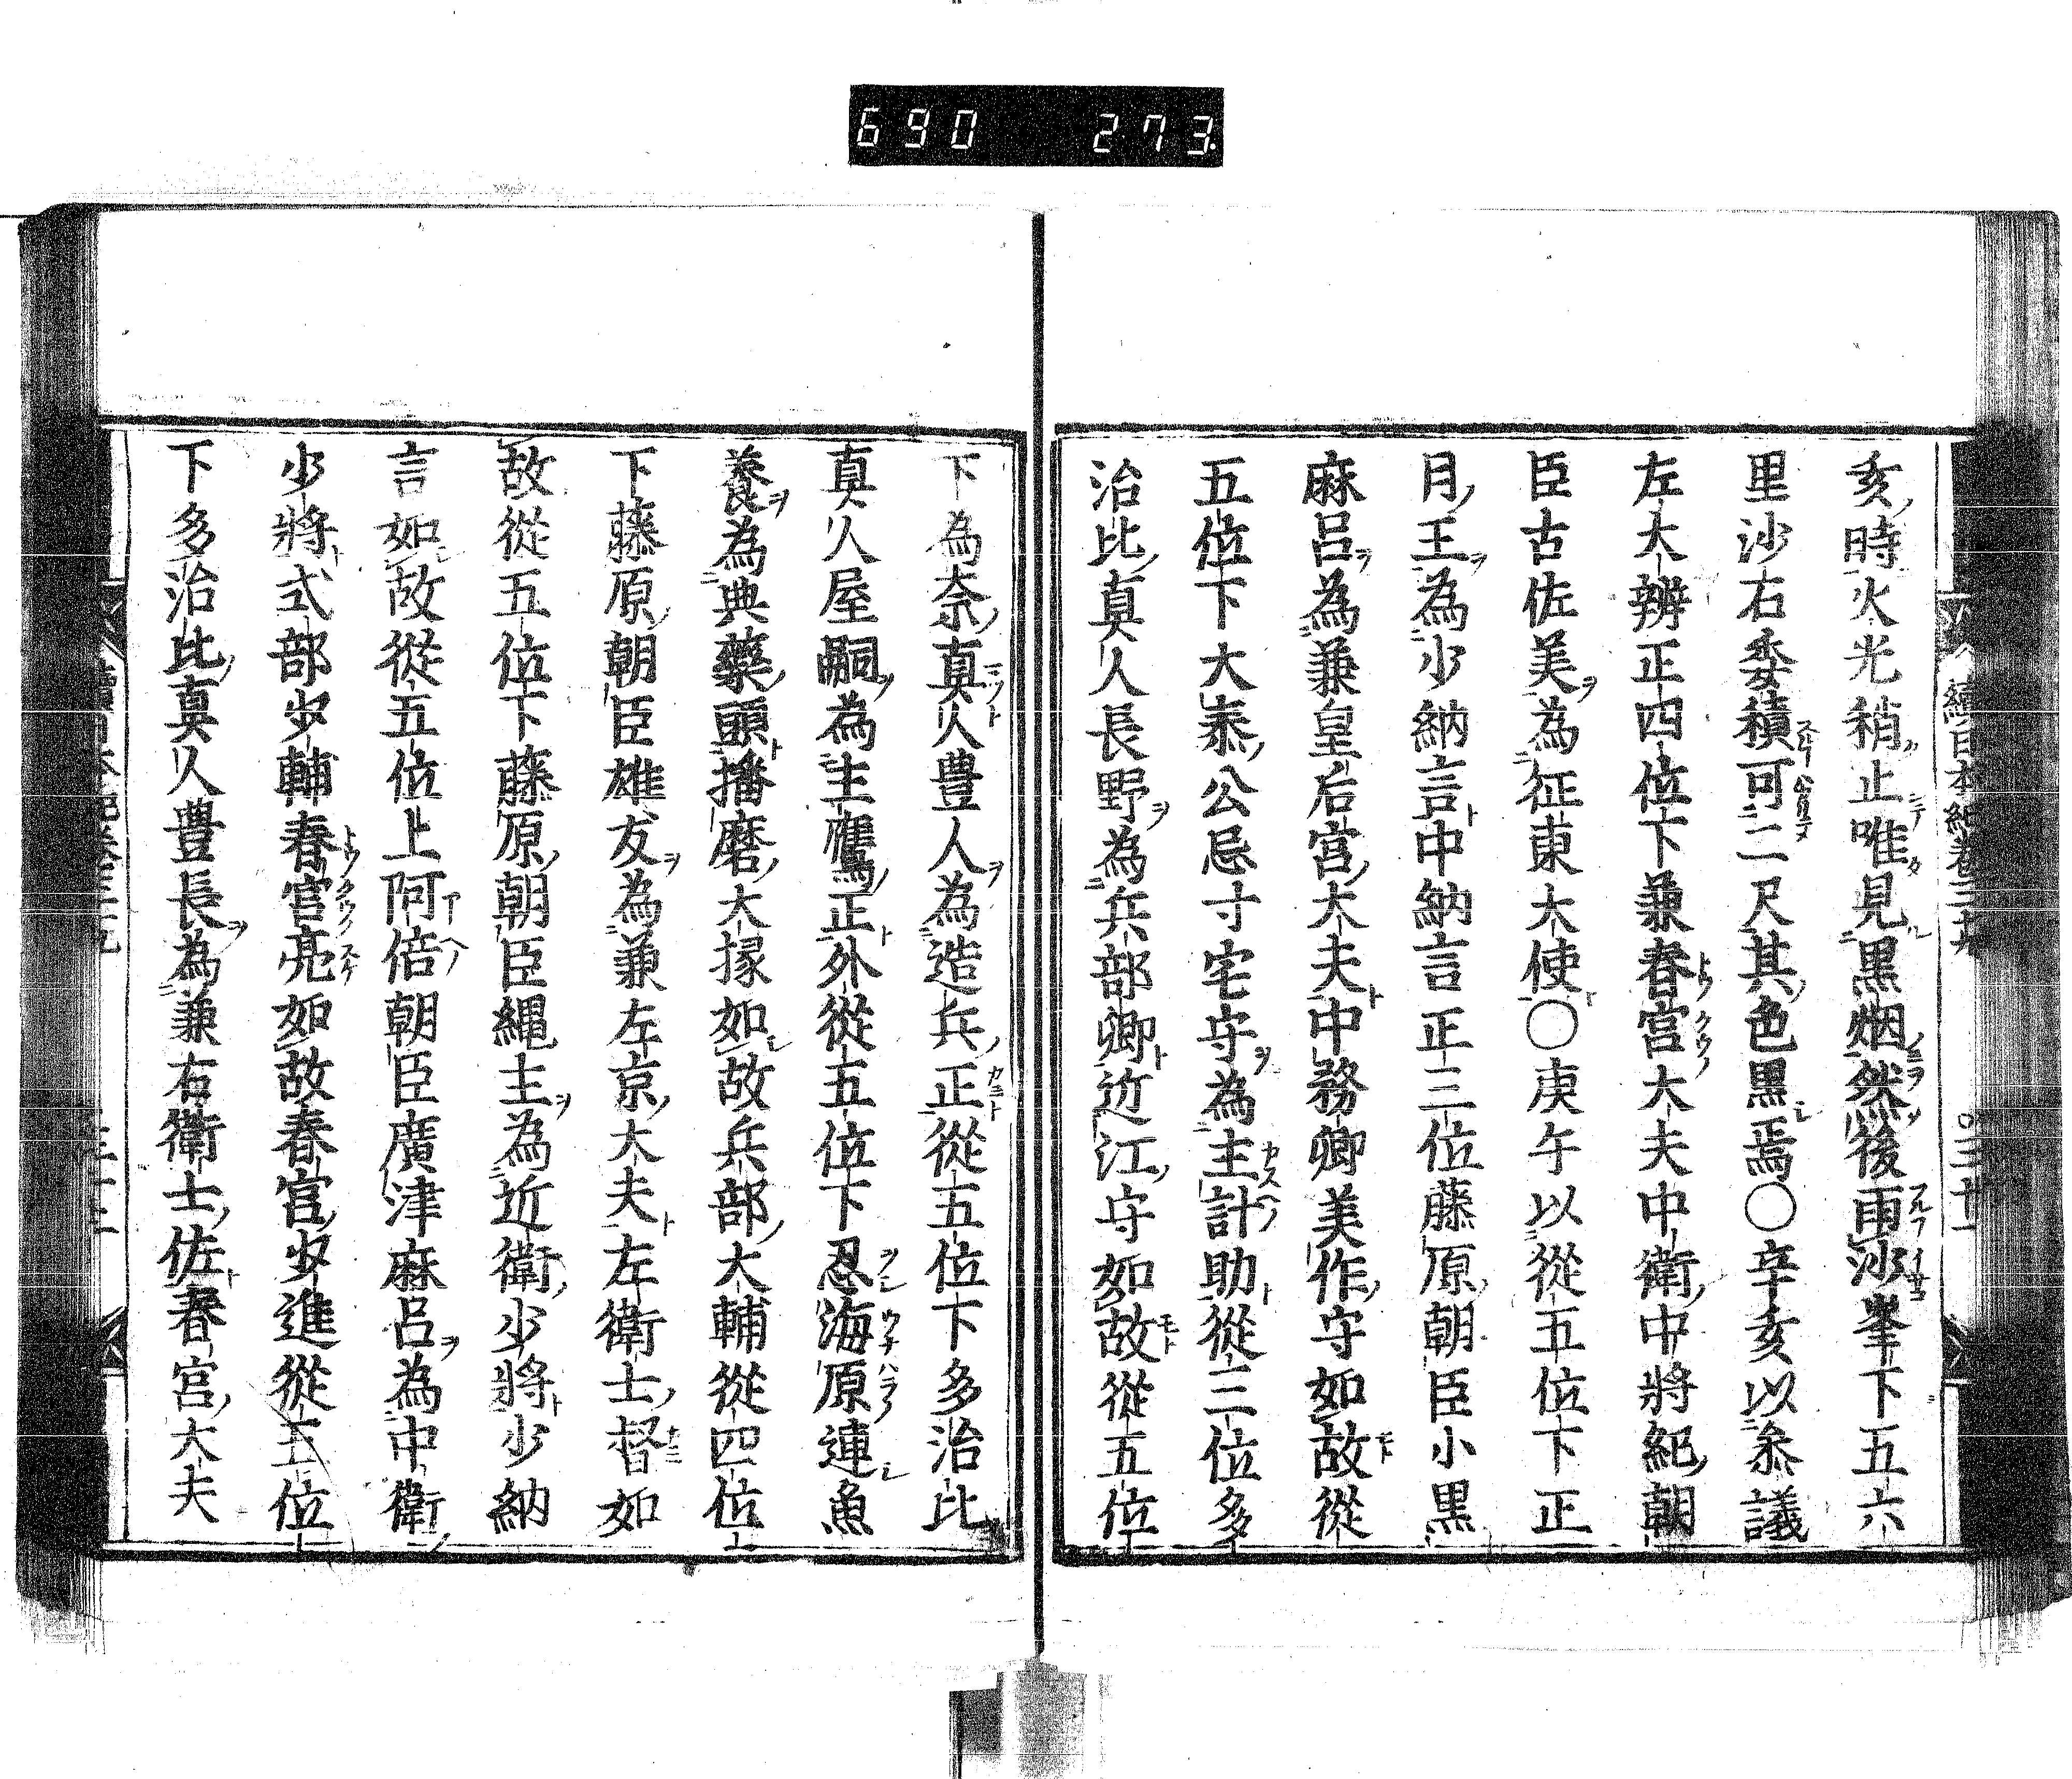 690 273
續日本紀卷三十九
亥時火光稍止唯見黒烟然後雨沙峯下五六
里沙石委積可二尺其色黒焉○辛亥以叅議
左大辨正四位下兼春宮大夫中衛中將紀朝
臣古佐美為征東大使○庚午以從五位下正
月王為少納言中納言正三位藤原朝臣小黒
麻呂為兼皇后宮大夫中務卿美作守如故從
五位下大秦公忌寸宅守為主計助從三位多
治比真人長野為兵部卿近江守如故從五位
下為奈真人豊人為造兵正從五位下多治比
真人屋嗣為主鷹正外從五位下忍海原連魚
養為典藥頭播磨大掾如故兵部大輔從四位上
下藤原朝臣雄友為兼左京大夫左衛士督如
故從五位下藤原朝臣縄主為近衛少將少納
言如故從五位上阿倍朝臣廣津麻呂為中衛
少將式部少輔春宮亮如故春宮少進從五位
下多治比真人豊長為兼右衛士佐春宮大夫